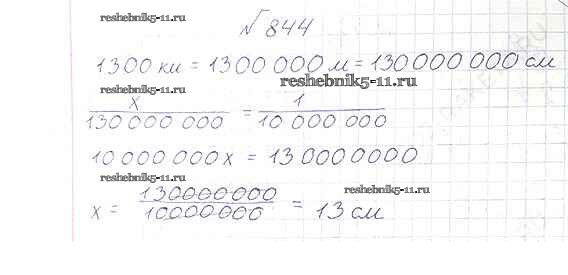 reshebnik5-11.ru
№ 844
1300 км = 1300 000 м = 130 000 000 см
reshebnik5-11.ru
reshebnik5-11.ru
x/130 000 000 = 1/10 000 000
10 000 000 x = 130000000
reshebnik5-11.ru
reshebnik5-11.ru
x = 130000000/10000000 = 13 см